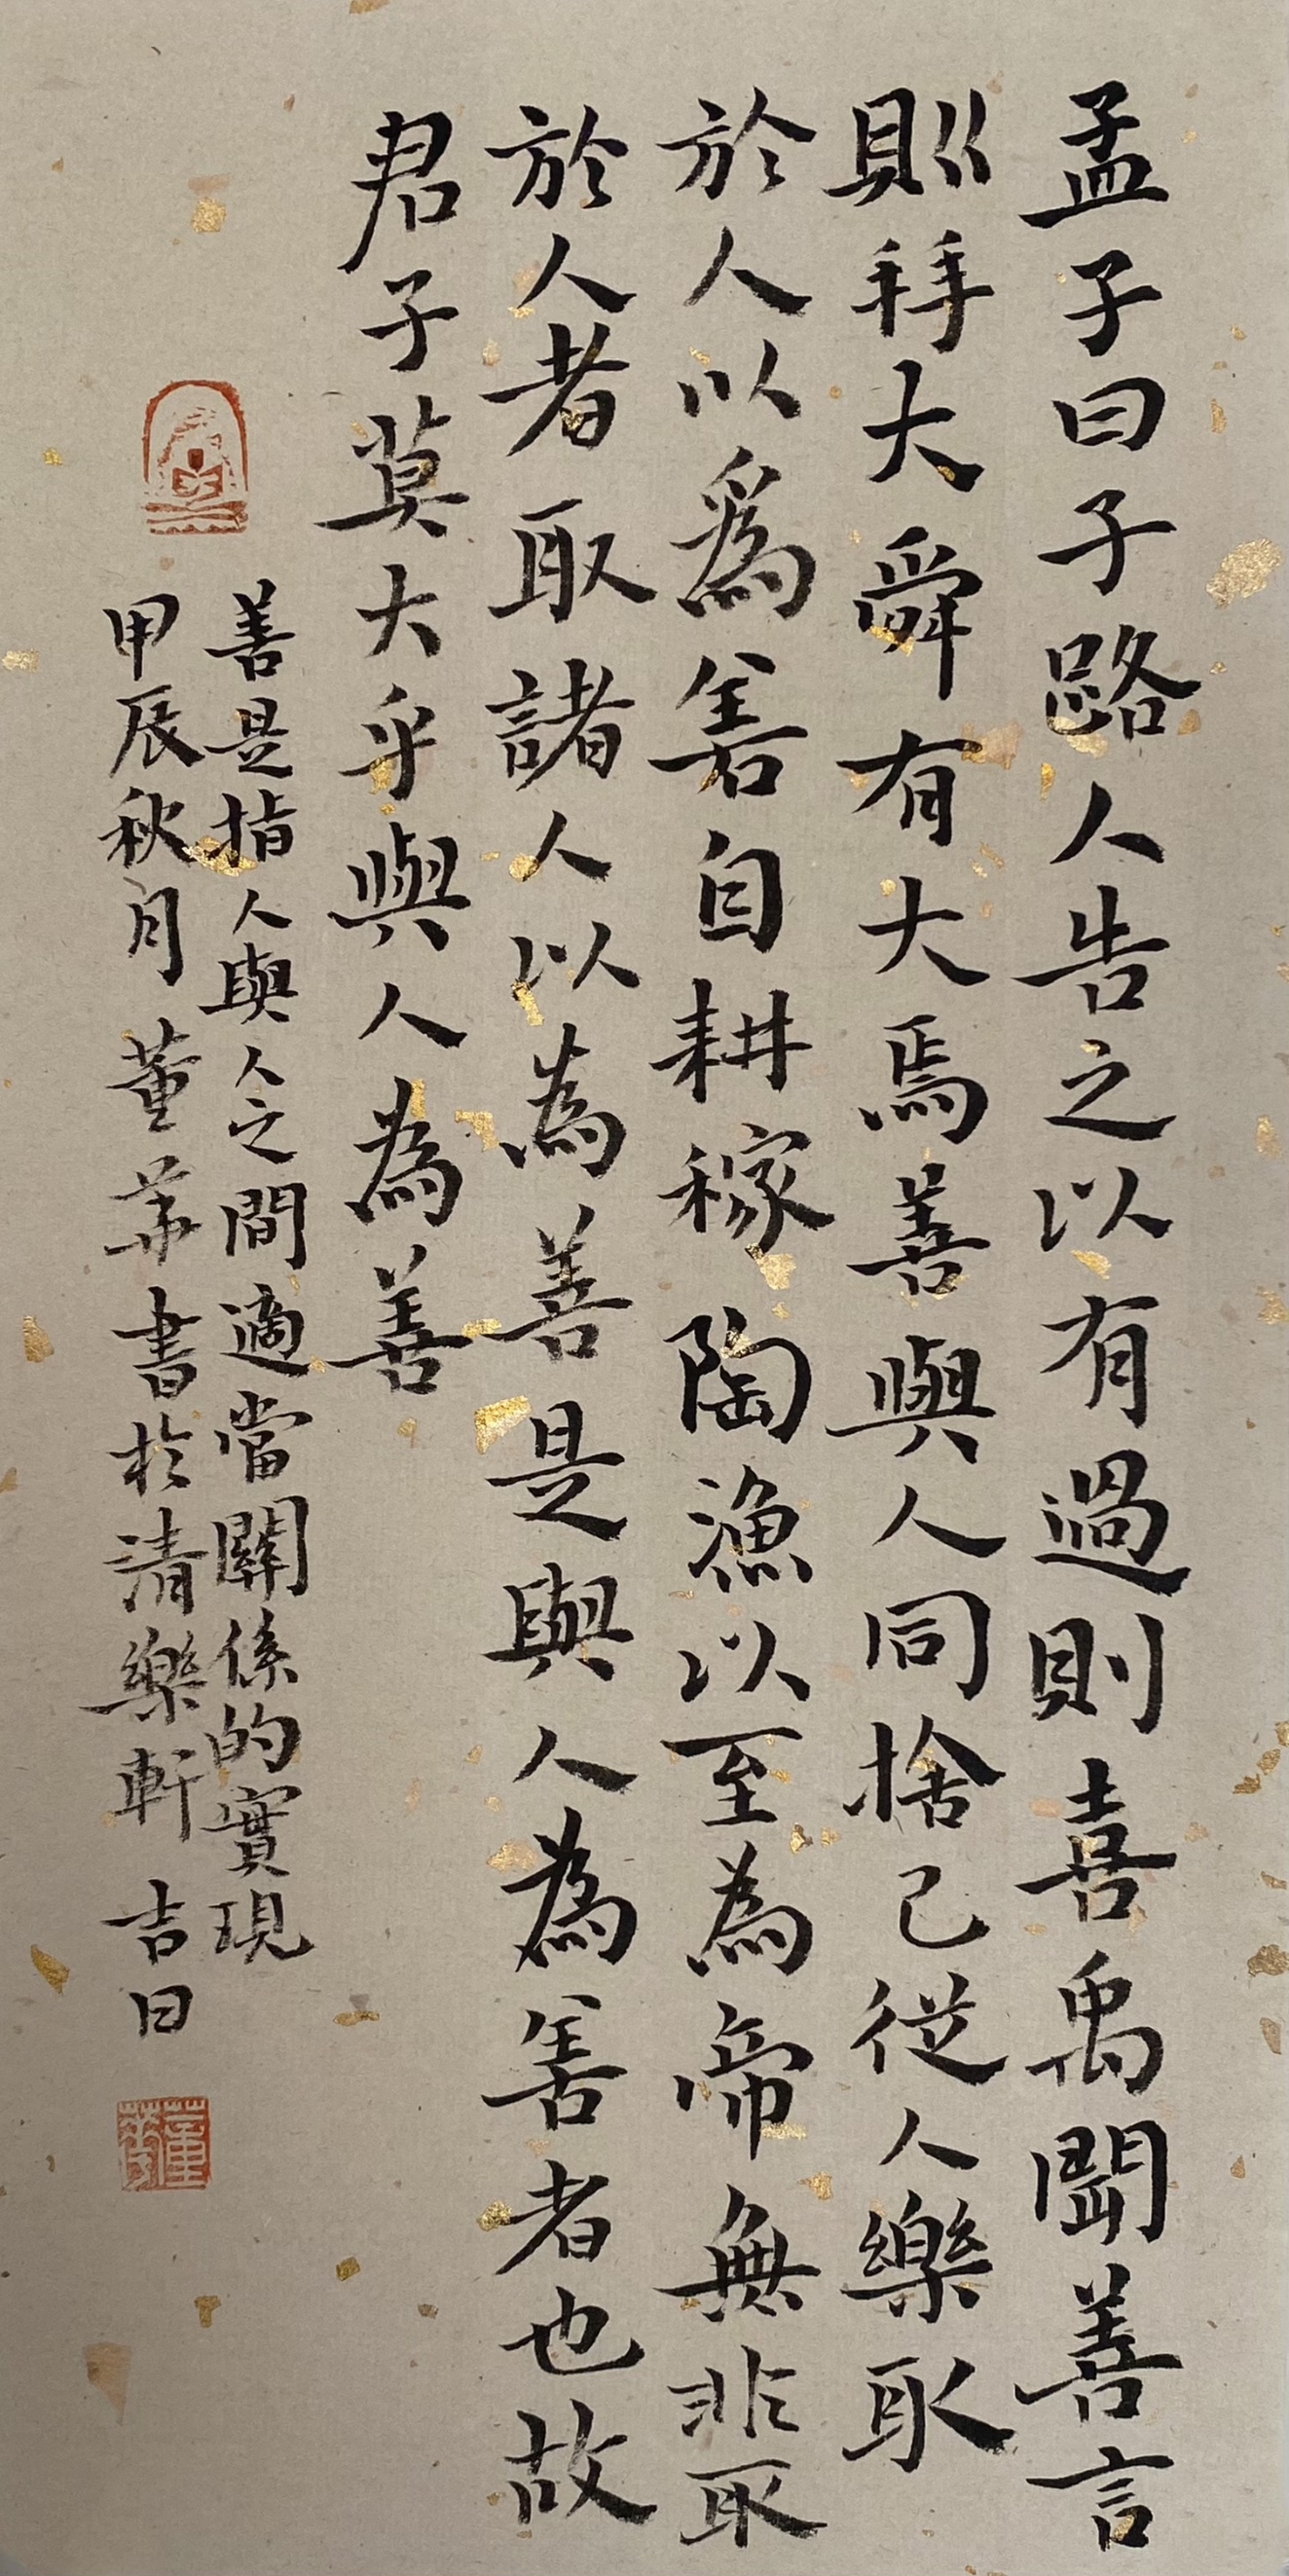 孟子曰子路人告之以有過則喜禹聞善言
則拜大舜有大焉善與人同捨己從人樂取
於人以爲善自耕稼陶漁以至為帝無非取
於人者取諸人以為善是與人為善者也故
君子莫大乎與人為善
善是指人與人之間適當關係的實現
甲辰秋月董華書於清樂軒吉日